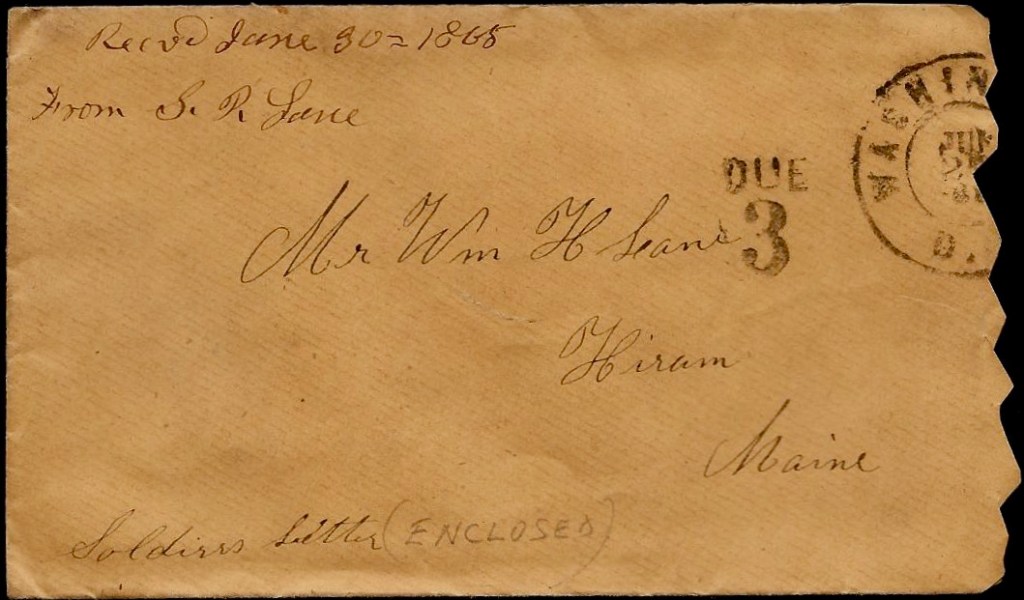 Recvd June 30 = 1865
From S. R. Lane
WASHIN
JUN
D.
DUE
3
Mr Wm H Lane
Hiram
Maine
Soldiers Letter (ENCLOSED)